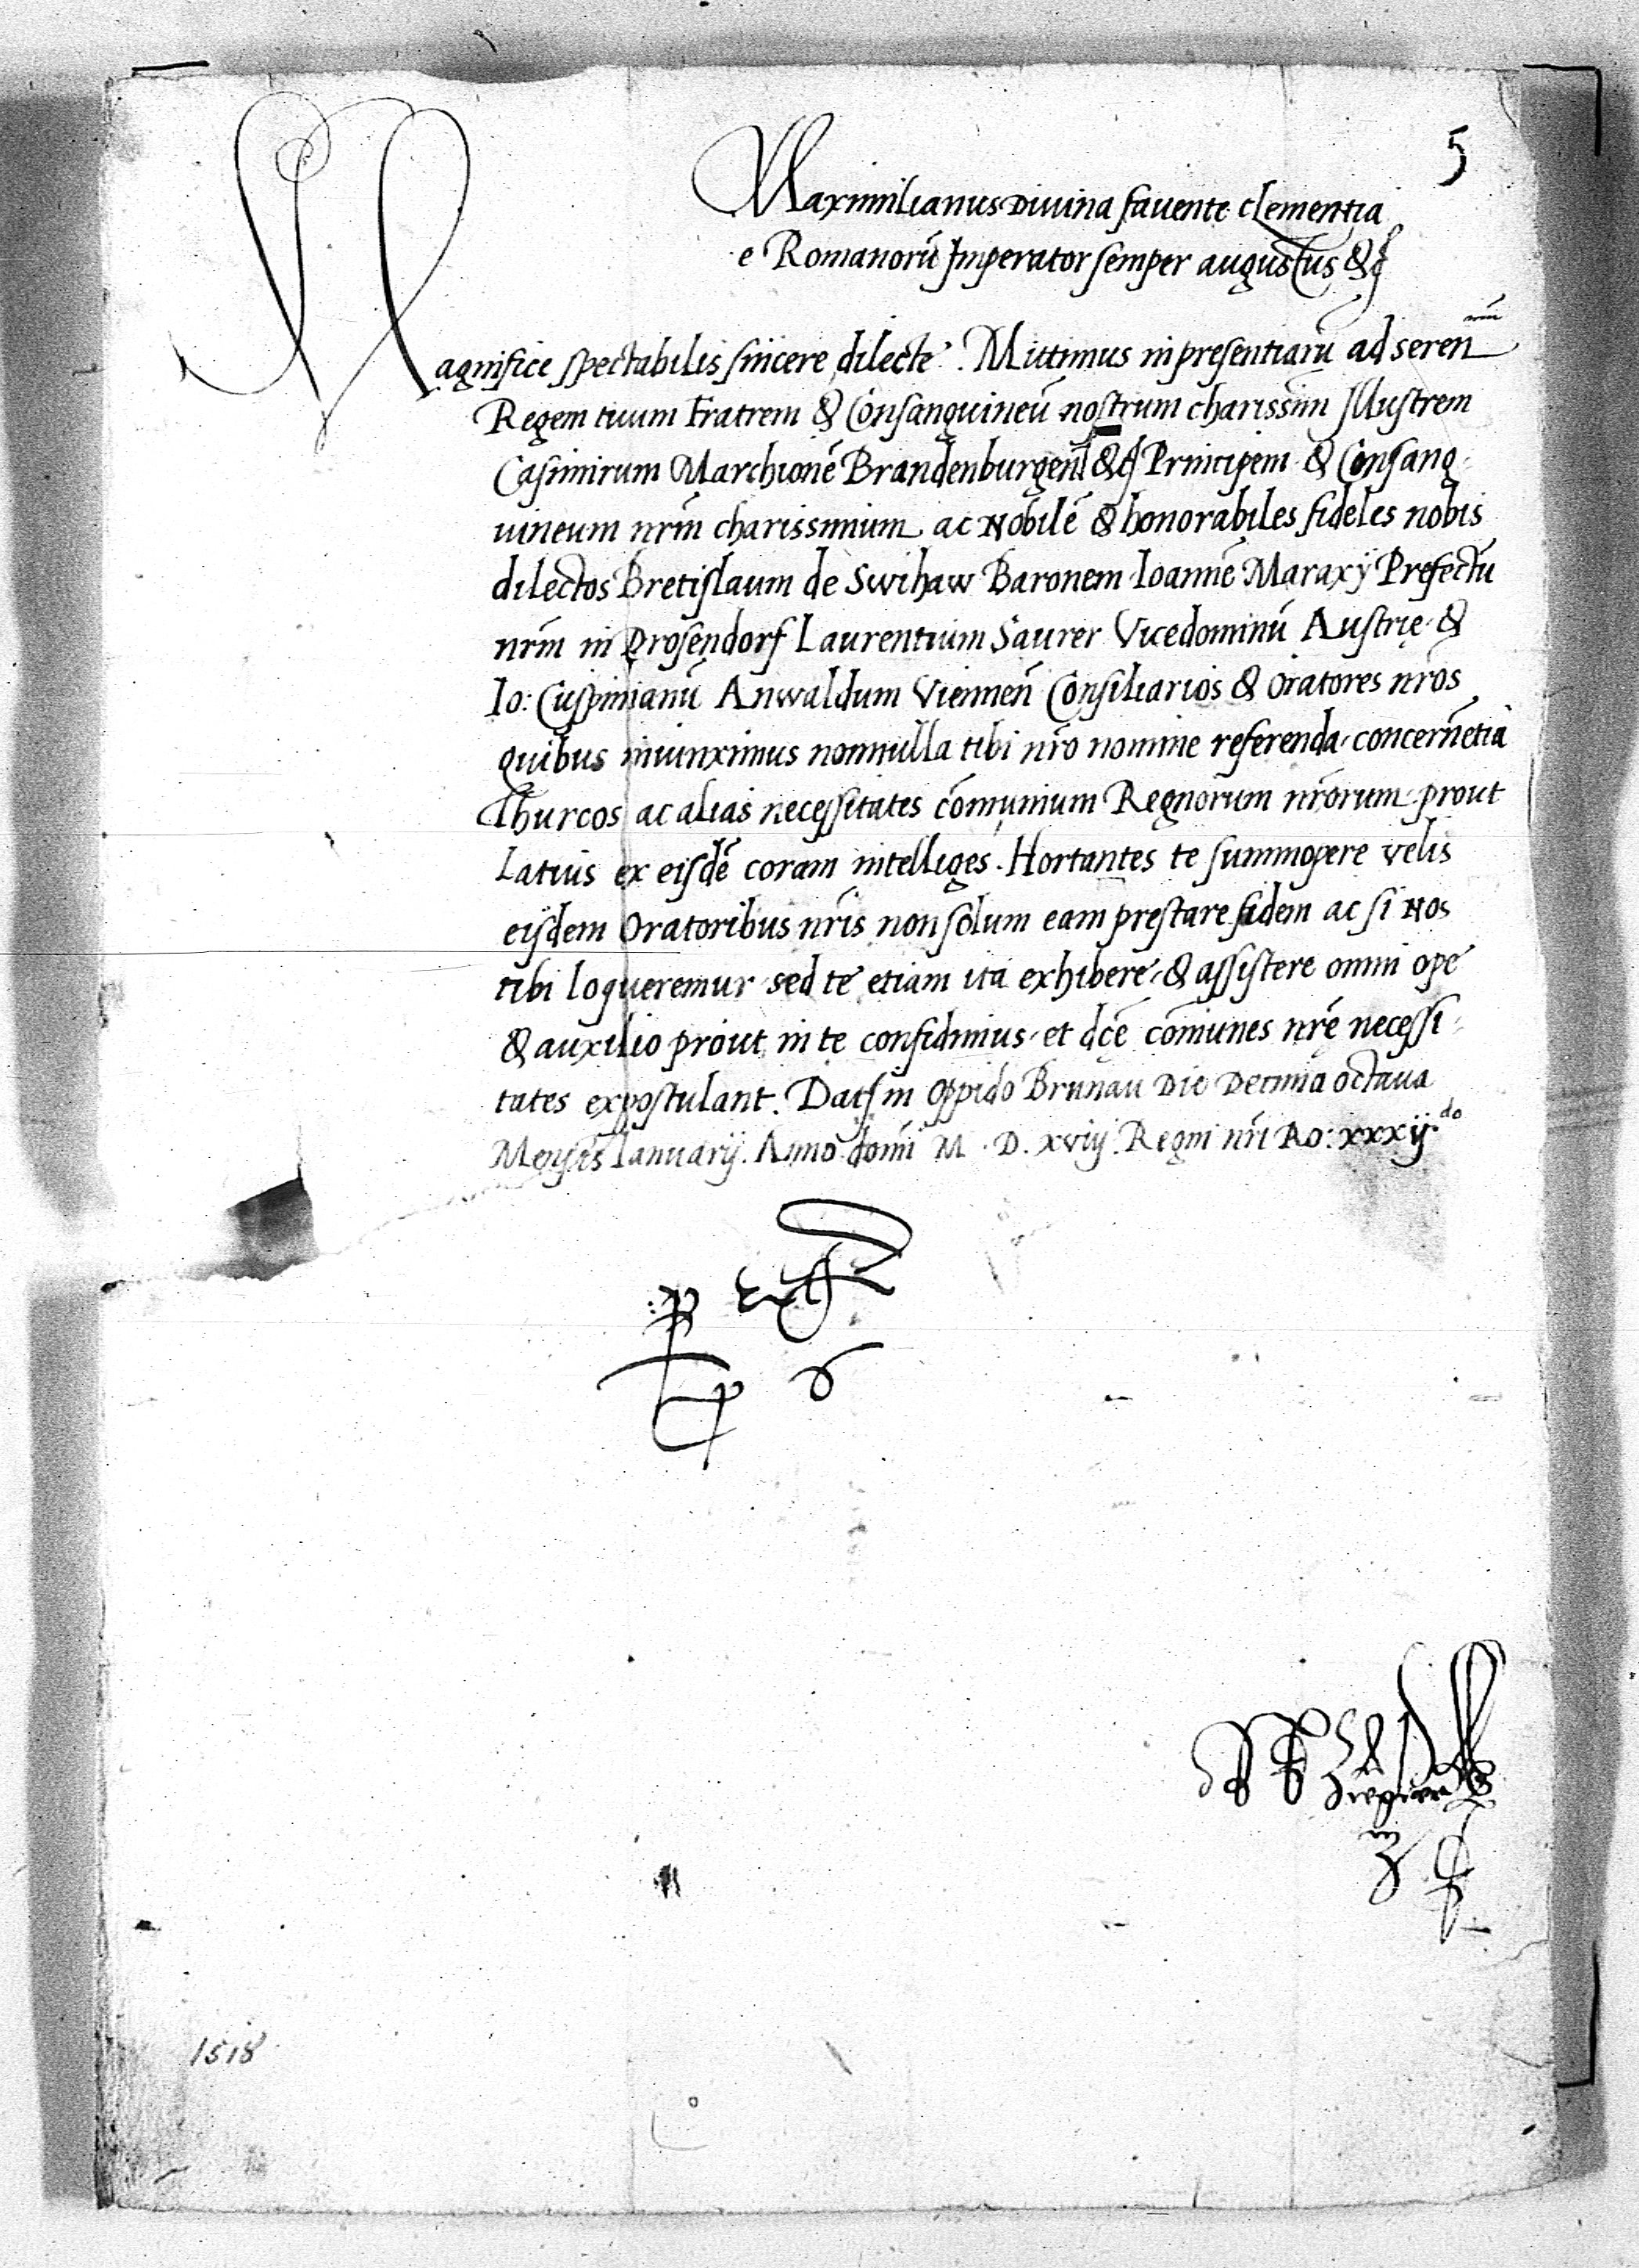 5
Maximilianus Divina favente clementia
e Romanorū Imperator semper augustus &c
Magnifice spectabilis sincere dilecte. Mittimus in presentiarū ad serenmū
Regem tuum Fratrem & Consanguineū nostrum charissim̄ Illustrem
Casimirum Marchionē Brandenburgen̄ &c Principem & Consang
uineum nr̄m charissimum ac Nobilē & honorabiles fideles nobis
dilectos Bretislaum de Swihaw Baronem Ioannē Maraxÿ Prefectū
nr̄m in Drosendorf Laurentium Saurer Vicedominū Austrię &
Io: Cuspinianū Anwaldum Viennen̄ Consiliarios & Oratores nr̄os
quibus iniunximus nonnulla tibi nr̄o nomine referenda concernētia
Thurcos ac alias necessitates com̄unium Regnorum nr̄orum prout
Latius ex eisdē coram intelliges. Hortantes te summopere velis
eisdem Oratoribus nr̄is non solum eam prestare fidem ac si Nos
tibi loqueremur sed te etiam ita exhibere & assistere omni ope
& auxilio prout in te confidimus et dcē com̄unes nr̄ę necessi
tates expostulant. Dat in Oppido Brunau Die Decima octava
Mensis Ianuarij. Anno domī M. D. xviij. Regni nr̄i Ro: xxxijdo
1518